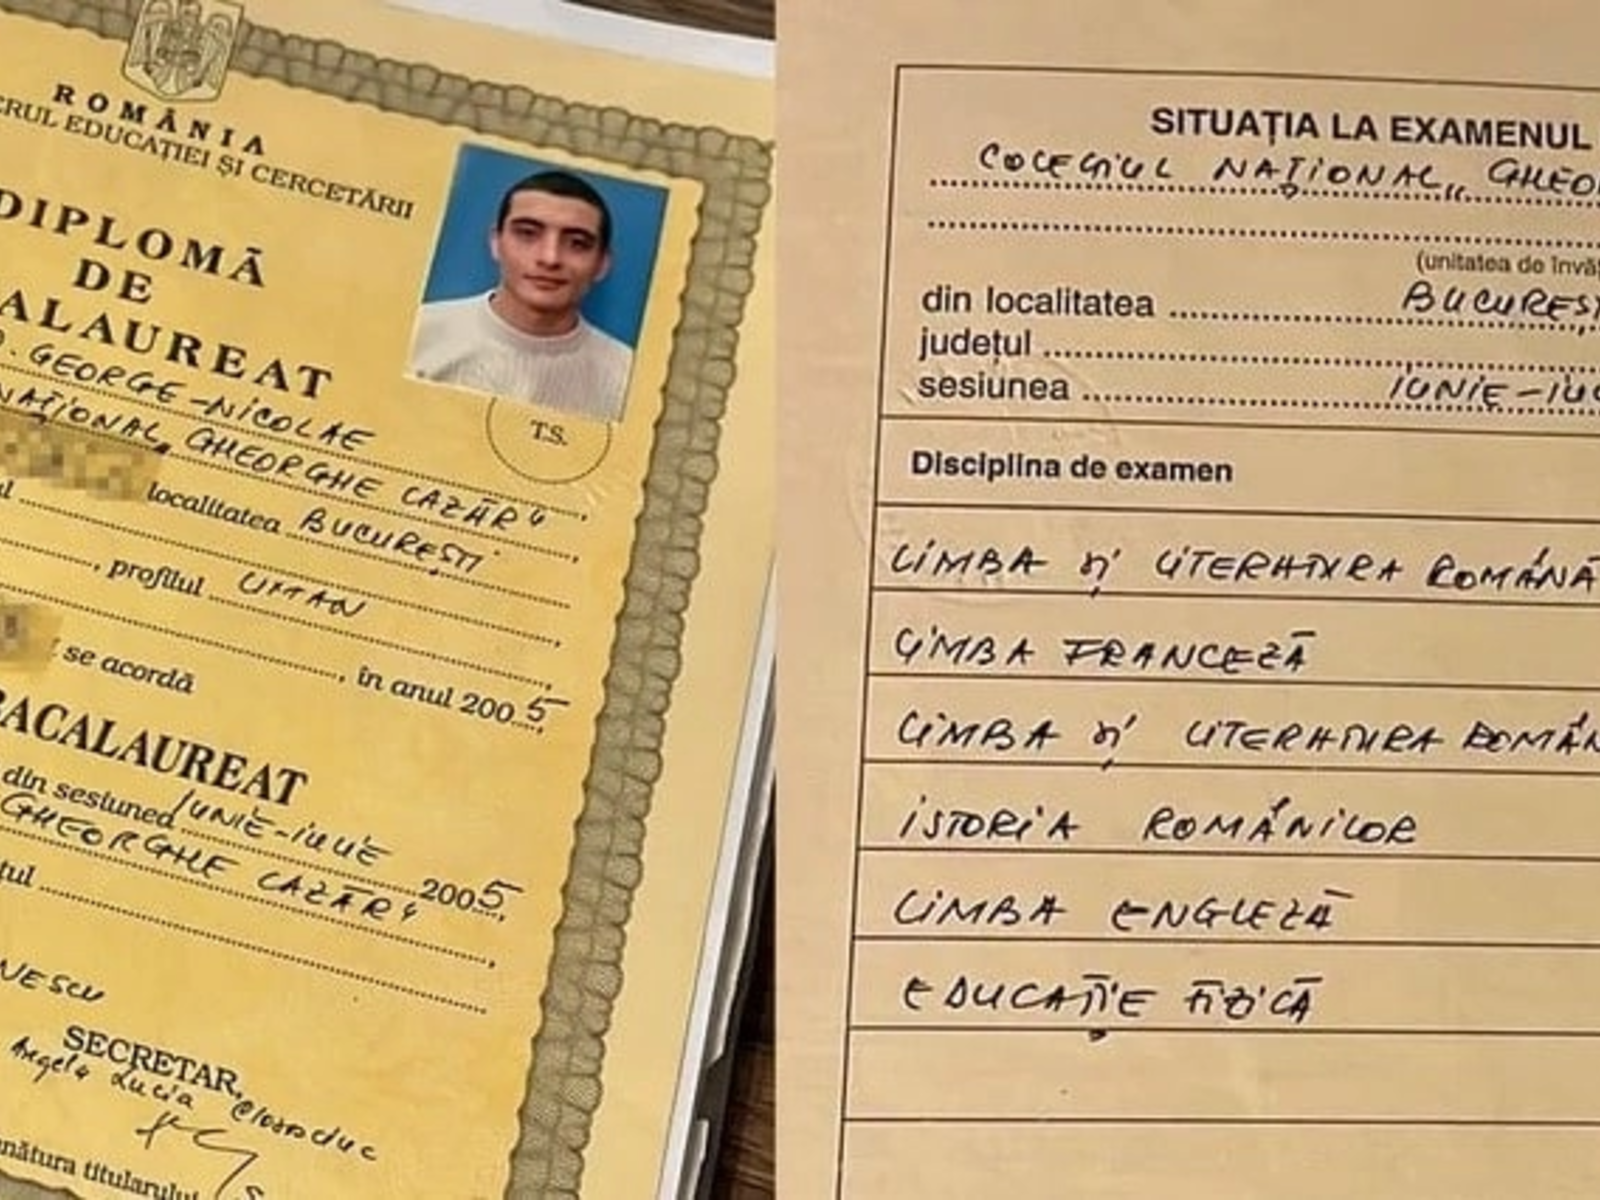 ROMÂNIA
ERUL EDUCAȚIEI ȘI CERCETĂRII
DIPLOMĂ
DE
ALAUREAT
D. GEORGE-NICOLAE
NAȚIONAL „GHEORGHE LAZĂR"
localitatea BUCUREȘTI
, profilul UMAN
, în anul 2005,
se acordă
BACALAUREAT
din sesiunea IUNIE-IULIE 2005,
GHEORGHE LAZĂR"
țul
NESCU
SECRETAR,
Angela Lucia
nătura titularului
T.S.
SITUAȚIA LA EXAMENUL
COLEGIUL NAȚIONAL „GHEOR
(unitatea de învăț
din localitatea BUCUREȘT
județul
sesiunea IUNIE-IUL
Disciplina de examen
LIMBA și LITERATURA ROMÂNĂ
LIMBA FRANCEZĂ
LIMBA și LITERATURA ROMÂN
ISTORIA ROMÂNILOR
LIMBA ENGLEZĂ
EDUCAȚIE FIZICĂ